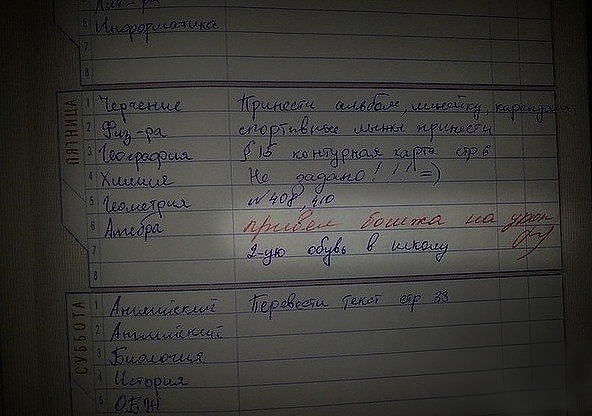 Лит-ра
6 Информатика
7
8
ПЯТНИЦА
1 Черчение Принести альбом, линейку, карандаш
2 Физ-ра спортивные лыжи принести
3 География § 15 контурная карта стр. 6
4 Химия Не задано! !!! =)
5 Геометрия №408, 410
6 Алгебра привел бомжа на урок
7 2-ую обувь в школу
8
СУББОТА
1 Английский Перевести текст стр 33
2 Английский
3 Биология
4 История
5 ОБЖ